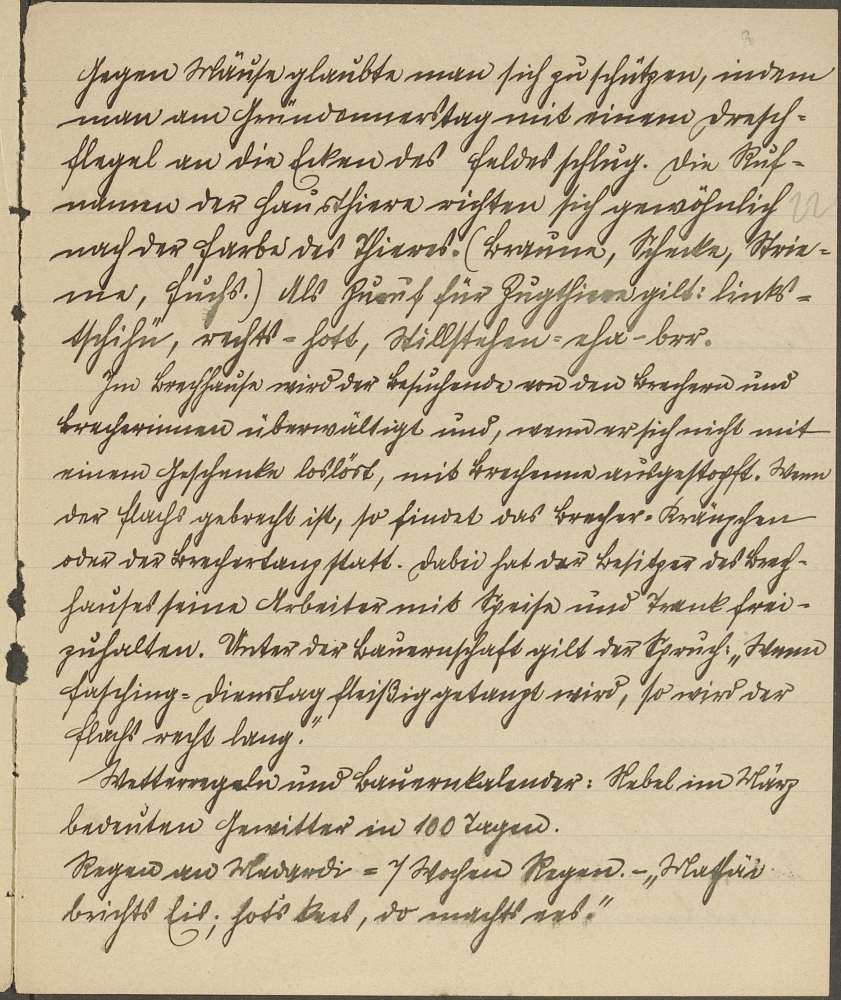 Gegen Mäuse glaubte man sich zu schützen, indem
man am Gründonnerstag mit einem Dresch-
flegel an die Ecken des Feldes schlug. Die Ruf-
namen der Hausthiere richten sich gewöhnlich
nach der Farbe des Thieres. (Braune, Schecke, Strie-
me, Fuchs.) Als Zuruf für Zugthiere gilt: links-
tschihü, rechts - hott, Stillstehen - eha - brr.
Im Brechhause wird der Besuchende von den Brechern und
Brecherinnen überwältigt und, wenn er sich nicht mit
einem Geschenke loslöst, mit Brechenne ausgestopft. Wenn
der Flachs gebrecht ist, so findet das Brecher-Kränzchen
oder der Brechertanz statt. Dabei hat der Besitzer des Brech-
hauses seine Arbeiter mit Speise und Trank frei-
zuhalten. Unter der Bauernschaft gilt der Spruch: „Wenn
Fasching-Dienstag fleißig getanzt wird, so wird der
Flachs recht lang."
Wetterregeln und Bauernkalender: Nebel im März
bedeuten Gewitter in 100 Tagen.
Regen an Medardi = 7 Wochen Regen. - „Mathäi
brichts Eis; hots kees, do machts ees."